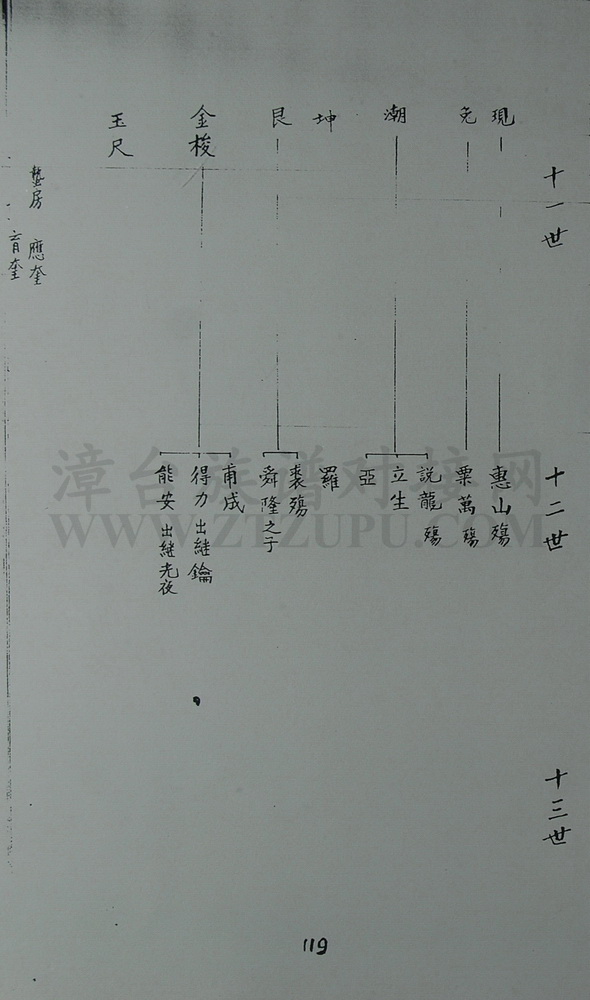 十一世
十二世
十三世
現
惠山殤
免
栗萬殤
潮
説龍殤
立生
亞
坤
羅
艮
裘殤
舜隆之子
金梭
甫成
得力出継鑰
能安出継光夜
玉尺
房應奎
奎
漳台族谱对接网
WWW.ZTZUPU.COM
119